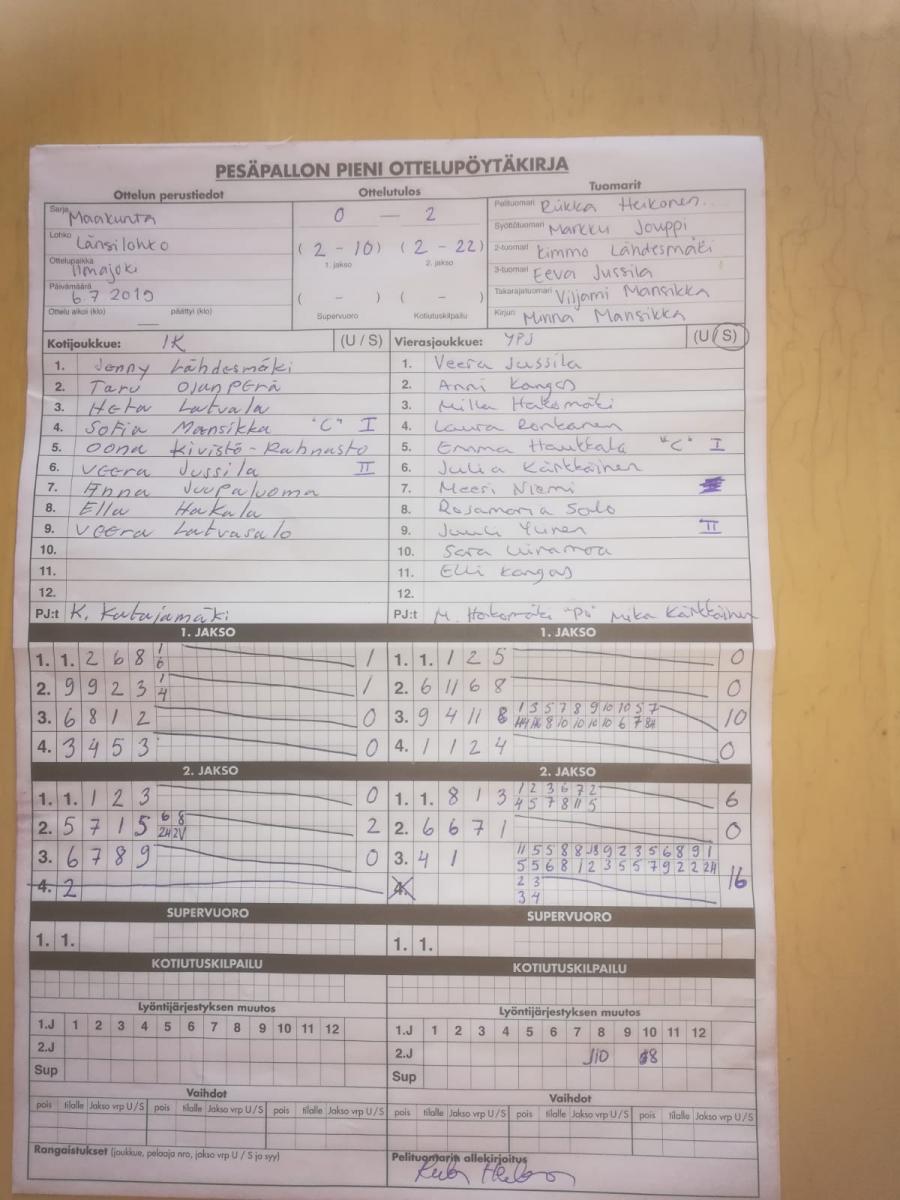 PESÄPALLON PIENI OTTELUPÖYTÄKIRJA
Ottelun perustiedot
Sarja Maakunta
Lohko Länsilohko
Ottelupaikka Ilmajoki
Päivämäärä 6.7 2019
Ottelu alkoi (klo) päättyi (klo)
Ottelutulos
0 – 2
(2 - 10) (2 - 22)
1. jakso 2. jakso
( - ) ( - )
Supervuoro Kotiutuskilpailu
Tuomarit
Pelituomari Riikka Heikonen
Syöttötuomari Markku Jouppi
2-tuomari Kimmo Lähdesmäki
3-tuomari Eeva Jussila
Takarajatuomari Viljami Mansikka
Kirjuri Minna Mansikka
Kotijoukkue: IK (U / S)
1. Jenny Lähdesmäki
2. Taru Ojanperä
3. Heta Latvala
4. Sofia Mansikka "C" I
5. Oona Kivistö-Rahnasto
6. Veera Jussila II
7. Anna Juupaluoma
8. Ella Hakala
9. Veera Latvasalo
10.
11.
12.
PJ:t K. Katajamäki
Vierasjoukkue: YPJ (U / S)
1. Veera Jussila
2. Anni Kangas
3. Milla Hakomäki
4. Laura Ronkanen
5. Emma Haukkala "C" I
6. Julia Kärkkäinen
7. Meeri Niemi
8. Rosamaria Salo
9. Juuli Ylinen II
10. Sara
11. Elli Kangas
12.
PJ:t M. Hakomäki "PJ" Mika Kärkkäinen
1. JAKSO
1. 1. 2 6 8 1 1
6
2. 9 9 2 3 1 1
4
3. 6 8 1 2 0
4. 3 4 5 3 0
1. JAKSO
1. 1. 1 2 5 0
2. 6 11 6 8 0
3. 9 4 11 8 1 3 5 7 8 9 10 10 5 7 10
8 10 10 10 6 7
4. 1 1 2 4 0
2. JAKSO
1. 1. 1 2 3 0
2. 5 7 1 5 6 8 2
2H 2V
3. 6 7 8 9 0
4. 2
2. JAKSO
1. 1. 8 1 3 1 2 3 6 7 2 6
4 5 7 8 11 5
2. 6 6 7 1 0
3. 4 1 11 5 5 8 8 9 2 3 5 6 8 9 1 16
5 5 6 8 1 2 3 5 5 7 9 2 2 2H
2 3
3 4
4.
SUPERVUORO
1. 1.
SUPERVUORO
1. 1.
KOTIUTUSKILPAILU
KOTIUTUSKILPAILU
Lyöntijärjestyksen muutos
1.J 1 2 3 4 5 6 7 8 9 10 11 12
2.J
Sup
Lyöntijärjestyksen muutos
1.J 1 2 3 4 5 6 7 8 9 10 11 12
2.J J10
Sup
Vaihdot
pois tilalle Jakso vrp U / S pois tilalle Jakso vrp U / S pois tilalle Jakso vrp U / S
Vaihdot
pois tilalle Jakso vrp U / S pois tilalle Jakso vrp U / S pois tilalle Jakso vrp U / S
Rangaistukset (joukkue, pelaaja nro, jakso vrp U / S ja syy)
Pelituomarin allekirjoitus